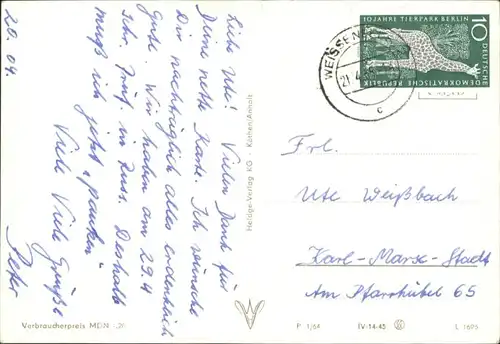 20.04.
Liebe Ute! Vielen Dank für
Deine nette Karte. Ich wünsche
Dir nachträglich alles erdenklich
Gute. Wir haben am 29.4
schr. Prüf. in Russ. Deshalb
muß ich jetzt "pauken"
Viele Viele Grüße
Peter
Verbraucherpreis MDN -,20
Heldge-Verlag KG · Köthen/Anhalt
P 1/64 IV-14-45 L 1695
WEISSEN
21.4.
c
10 JAHRE TIERPARK BERLIN
10
DEUTSCHE
DEMOKRATISCHE REPUBLIK
Frl.
Ute Weißbach
Karl-Marx-Stadt
Am Pfarrhübel 65